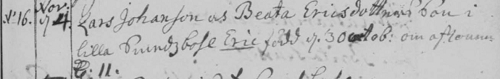 N:16. Nov: d 4. Lars Johanson as Beata Ericsdotters Son i
lilla Sundzbohl Eric född d. 30 octob: om aftonen
kl: 11.